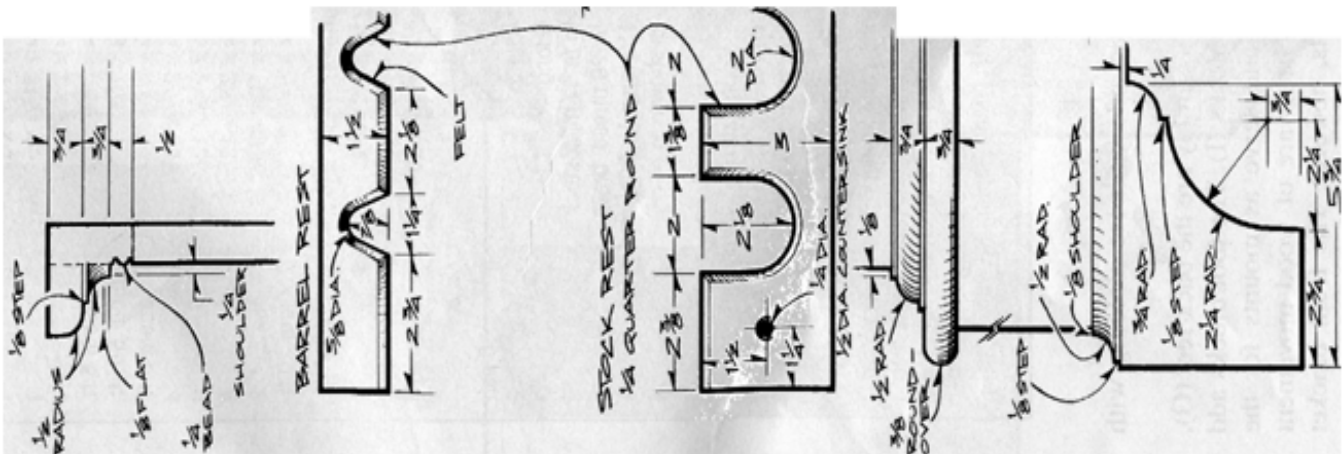 3/4
3/4
1/2
1/8 STEP
1/2 RADIUS
1/8 FLAT
1/4 BEAD
1/4 SHOULDER
BARREL REST
1 1/2
5/8 DIA.
7/8
2 1/8
1 1/4
2 3/4
FELT
STOCK REST
1/4 QUARTER ROUND
2
1 3/8
2
2 3/8
2 DIA.
3
2 1/8
1 1/2
1 1/4
1/4 DIA.
1/2 DIA. COUNTERSINK
3/4
3/4
1/8
1/2 RAD.
3/8 ROUND-OVER
1/8 STEP
1/2 RAD.
1/8 SHOULDER
3/4 RAD
1/8 STEP
2 1/4 RAD.
1/4
3/4
2 1/4
2 3/4
5 3/4
with